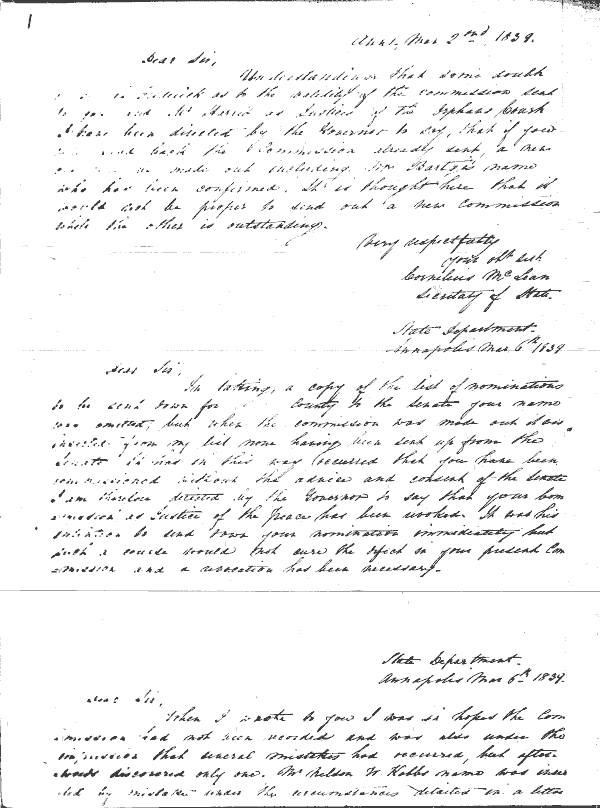 1
Anns. Mar 2nd, 1839.
Dear Sir,
Understanding that some doubt
as to the validity of the commission sent
to you and Mr as Justices of the Orphans Court
I have been directed by the Governor to say, that if you
send back the Commission already sent, a new
made out including Mr Barton's name
who has been confirmed. It is thought here that it
would not be proper to send out a new commission
while the other is outstanding.
Very respectfully
your obt svt
Cornelius McLean
Secretary of State.
State Department.
Annapolis Mar 6th 1839
Dear Sir,
In taking, a copy of the list of nominations
to be sent down for county to the Senate your name
was omitted, but when the commission was made out it was
inserted from my list none having been sent up from the
Senate it has in this way occurred that you have been
commissioned without the advice and consent of the Senate
I am therefore directed by the Governor to say that your Com
mission as Justice of the Peace has been revoked. It was his
intention to send down your nomination immediately but
such a course would not cure the defect in your present Com
mission and a revocation has been necessary.
State Department.
Annapolis Mar 6th 1839.
Dear Sir,
When I wrote to you I was in hopes the Com
mission had not been recorded and was also under the
impression that several mistakes had occurred, but after
wards discovered only one. Mr Nelson H Hobbs name was inser
ted by mistake under the circumstances detailed in a letter